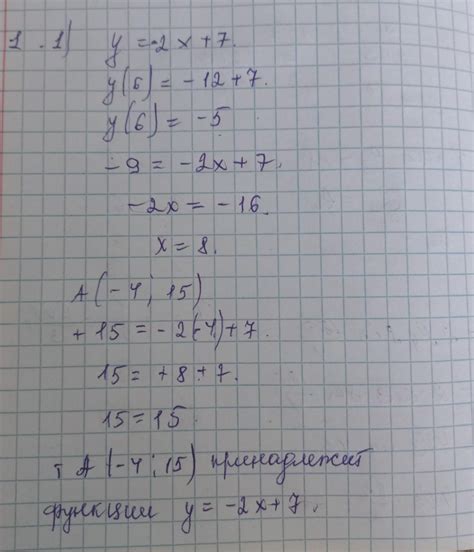 1. 1) y = -2x+7.
y(6) = -12+7.
y(6) = -5
-9 = -2x+7.
-2x = -16.
x = 8.
A(-4; 15)
+ 15 = -2(-4)+7.
15 = +8+7.
15 = 15
т A(-4; 15) принадлежит
функции y = -2x+7.